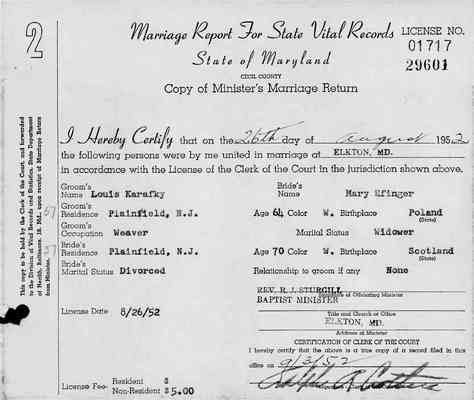 2
Marriage Report For State Vital Records
LICENSE NO.
01717
29601
State of Maryland
CECIL COUNTY
Copy of Minister's Marriage Return
I Hereby Certify that on the 26th day of August 1952
the following persons were by me united in marriage at ELKTON, MD.
in accordance with the License of the Clerk of the Court in the Jurisdiction shown above.
Groom's Name Louis Karafky Bride's Name Mary Efinger
Groom's Residence Plainfield, N.J. Age 64 Color W. Birthplace Poland (State)
Groom's Occupation Weaver Marital Status Widower
Bride's Residence Plainfield, N.J. Age 70 Color W. Birthplace Scotland (State)
Bride's Marital Status Divorced Relationship to groom if any None
REV. R. J. STURGILL
BAPTIST MINISTER
of Officiating Minister
License Date 8/26/52
Title and Church of Office
ELKTON, MD.
Address of Minister
CERTIFICATION OF CLERK OF THE COURT
I hereby certify that the above is a true copy of a record filed in this
office on 9/3/52
License Fee- Resident $
Non-Resident $5.00
This copy to be held by the Clerk of the Court, and forwarded
to the Division of Vital Records and Statistics, State Department
of Health, Baltimore, 18, Md., upon receipt of Marriage Return
from Minister.